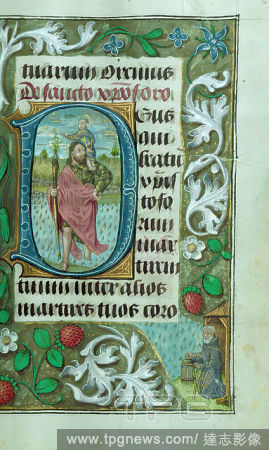 tuarum Oremus
De sancto xpoforo
Deus
qui
beatū
xpis
tofo
rum
mar
tirem
tuum inter alios
martires tuos coro
TPG
www.tpgnews.com/ 達志影像